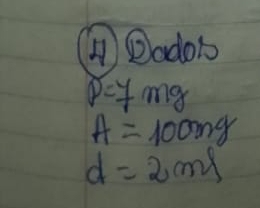 4 Dados
P=7 mg
A = 100mg
d = 2 ml